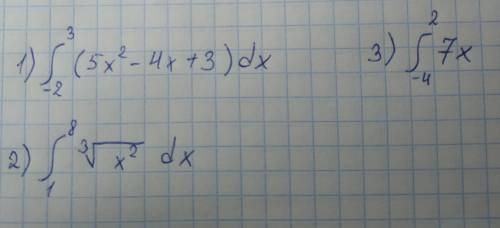 1) ∫_{-2}^{3} (5x² - 4x + 3) dx
3) ∫_{-4}^{2} 7x
2) ∫_{1}^{8} ∛x² dx